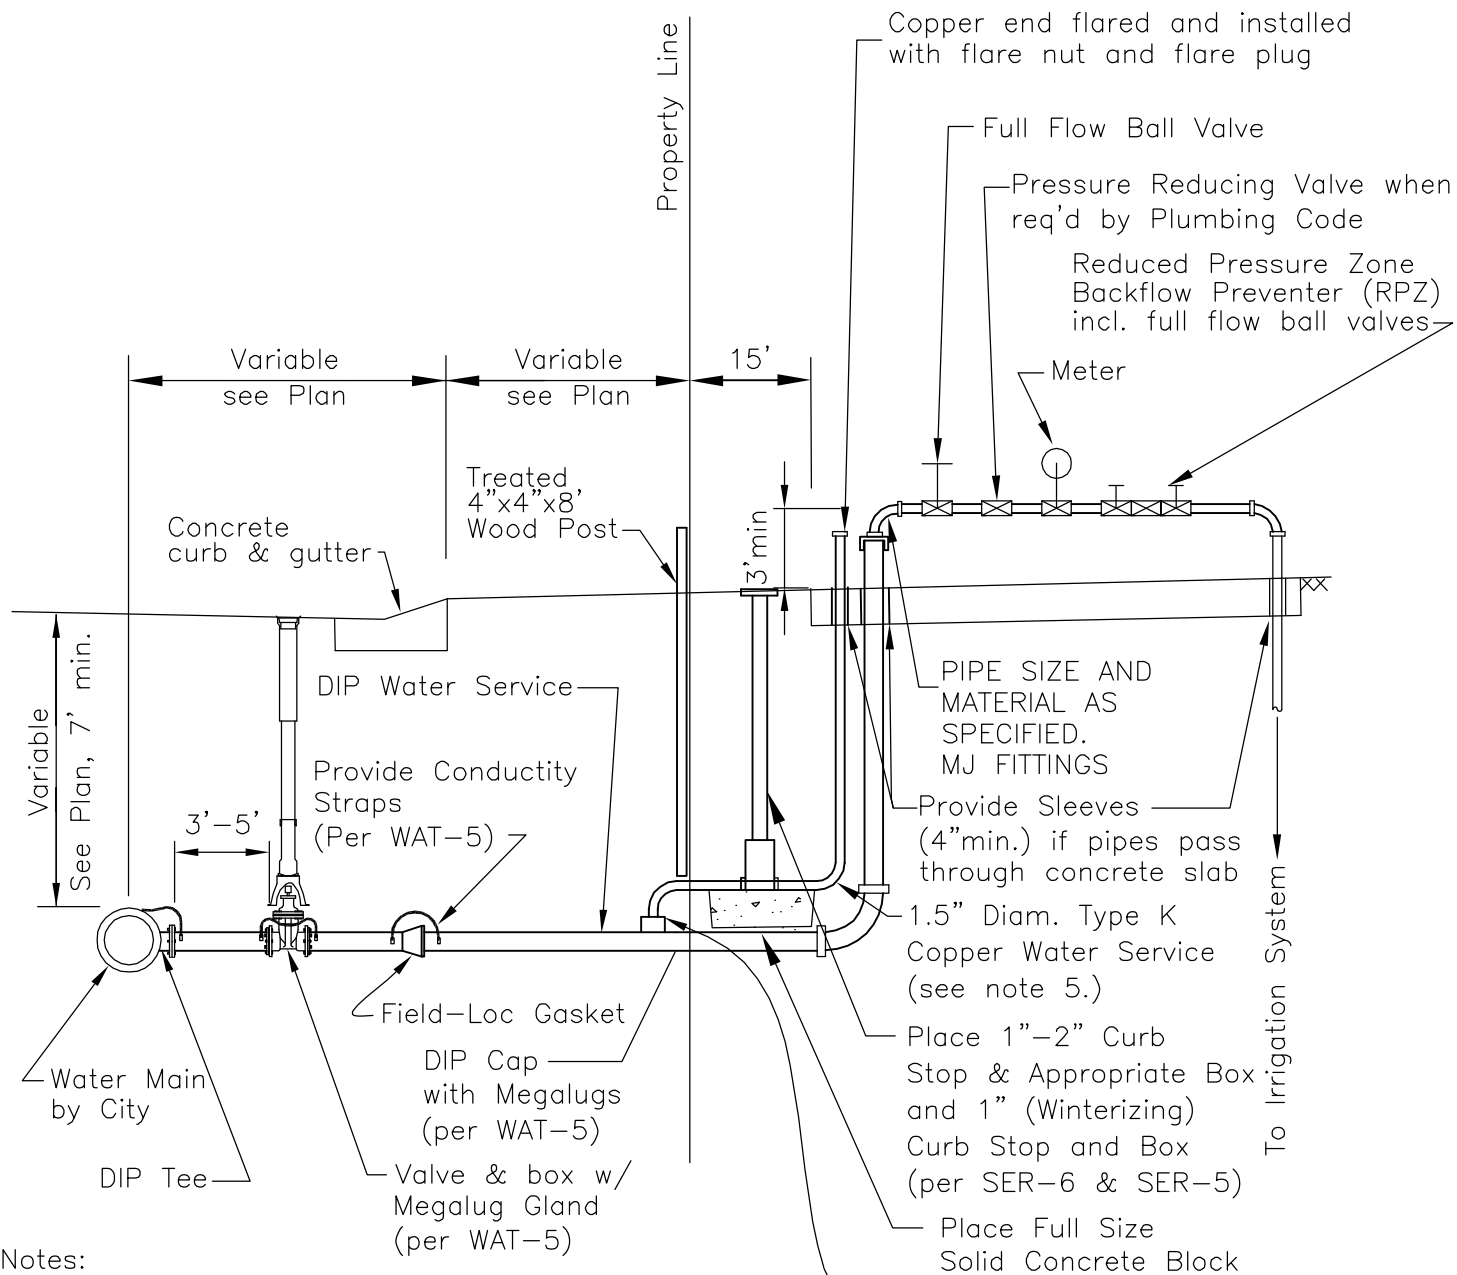 Copper end flared and installed
with flare nut and flare plug
Property Line
Full Flow Ball Valve
Pressure Reducing Valve when
req'd by Plumbing Code
Reduced Pressure Zone
Backflow Preventer (RPZ)
incl. full flow ball valves
Variable
see Plan
Variable
see Plan
15'
Meter
Treated
4"x4"x8'
Wood Post
Concrete
curb & gutter
3'min
XX
DIP Water Service
PIPE SIZE AND
MATERIAL AS
SPECIFIED.
MJ FITTINGS
Variable
See Plan, 7' min.
Provide Conductity
Straps
(Per WAT-5)
3'-5'
Provide Sleeves
(4"min.) if pipes pass
through concrete slab
1.5" Diam. Type K
Copper Water Service
(see note 5.)
To Irrigation System
Field-Loc Gasket
DIP Cap
with Megalugs
(per WAT-5)
Place 1"-2" Curb
Stop & Appropriate Box
and 1" (Winterizing)
Curb Stop and Box
(per SER-6 & SER-5)
Water Main
by City
DIP Tee
Valve & box w/
Megalug Gland
(per WAT-5)
Place Full Size
Solid Concrete Block
Notes: